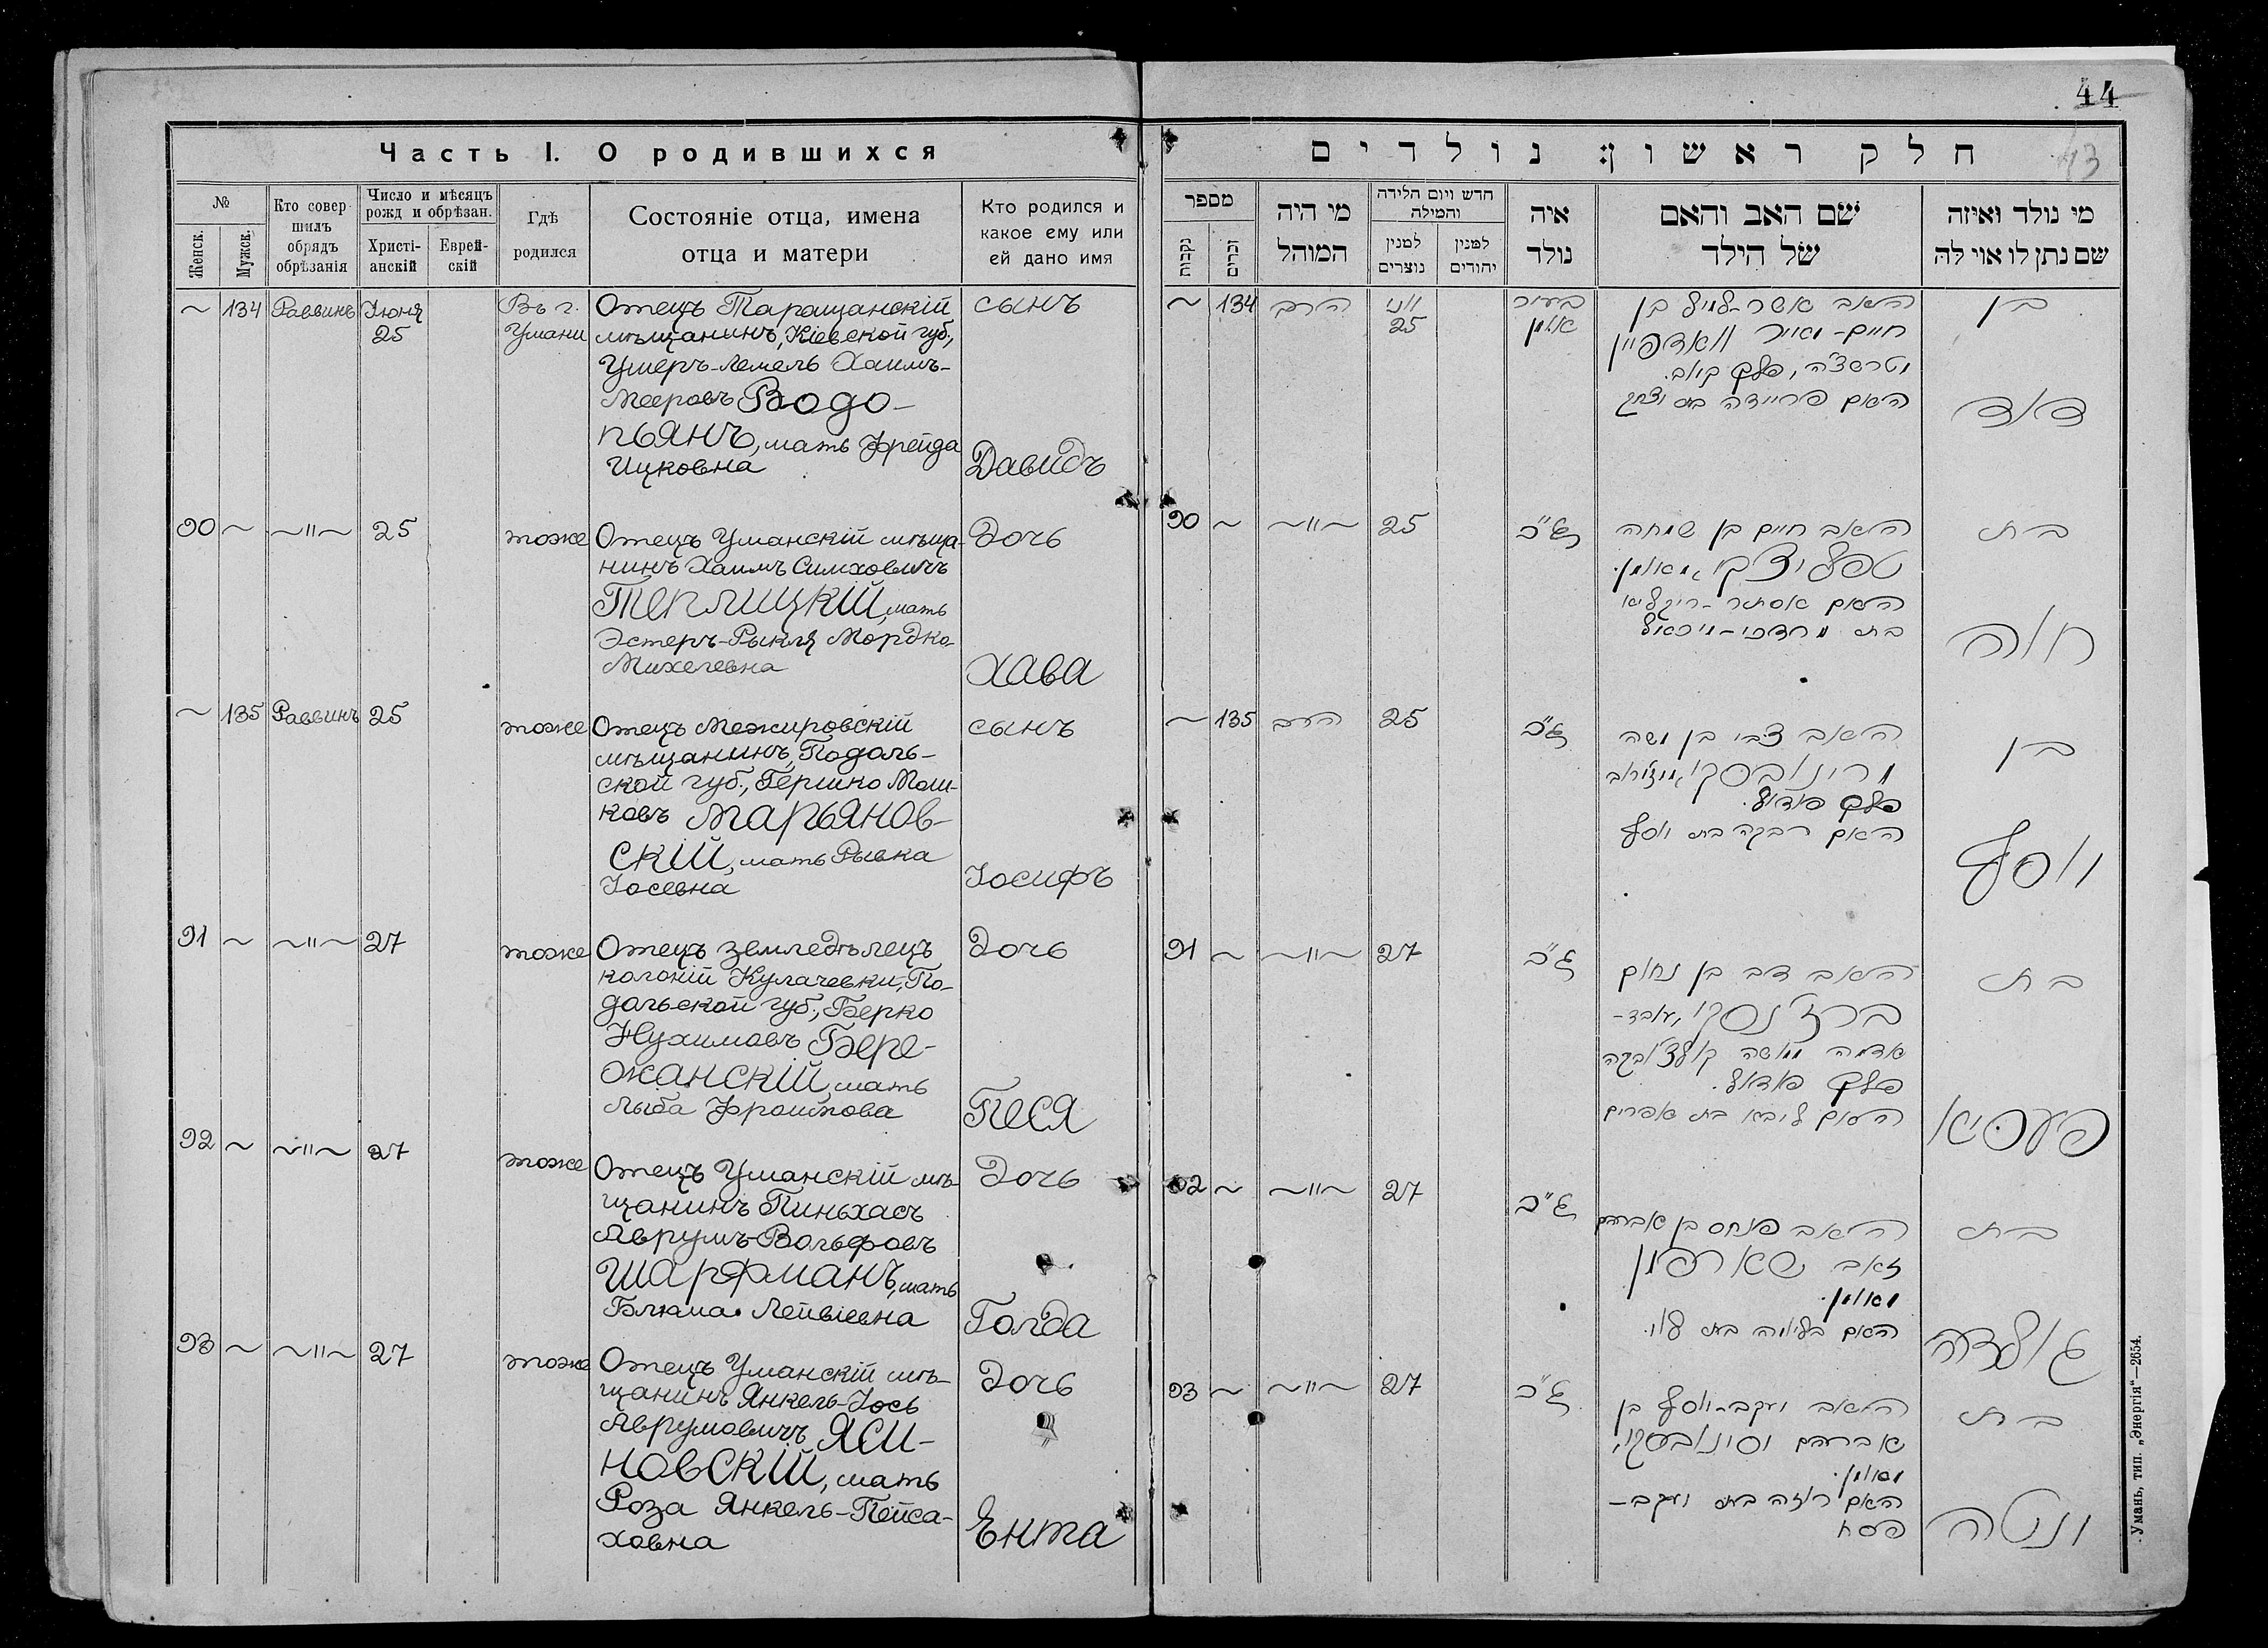 44
43
Часть I. О родившихся
№
Женск.
Мужск.
Кто совер
шилъ
обрядъ
обрѣзанія
Число и мѣсяцъ
рожд и обрѣзан.
Христі-
анскій
Еврей-
скій
Гдѣ
родился
Состояніе отца, имена
отца и матери
Кто родился и
какое ему или
ей дано имя
~ 134 Раввинъ Іюня
25
Въ г.
Умани
Отецъ Таращанскій
мѣщанинъ, Кіевской губ.,
Ушеръ-Лемель Хаимъ-
Мееровъ Водо-
пьянъ, мать Фрейда
Ицковна
сынъ
Давидъ
90 ~ ~"~ 25
тоже
Отецъ Уманскій мѣща-
нинъ Хаимъ Симховичъ
Теплицкій, мать
Эстеръ-Рыкля Мордко-
Михелевна
Дочь
Хава
~ 135 Раввинъ 25
тоже
Отецъ Межировскій
мѣщанинъ, Подоль-
ской губ., Гершко Мош-
ковъ Марьянов-
скій, мать Рывка
Іосевна
сынъ
Іосифъ
91 ~ ~"~ 27
тоже
Отецъ земледѣлецъ
колоній Кулачевки, По-
дольской губ., Берко
Нухимовъ Бере-
жанскій, мать
Лыба Фроимова
Дочь
Песя
92 ~ ~"~ 27
тоже
Отецъ Уманскій мѣ-
щанинъ Пиньхасъ
Аврумъ-Вольфовъ
Шарфманъ, мать
Блюма Лейвіевна
Дочь
Голда
93 ~ ~"~ 27
тоже
Отецъ Уманскій мѣ-
щанинъ Янкель-Іось
Аврумовичъ Яси-
новскій, мать
Роза Янкель-Пейса-
ховна
Дочь
Ента
חלק ראשון: נולדים
מספר
נקבה
זכר
מי היה
המוהל
חדש ויום הלידה
והמילה
למנין
נוצרים
למנין
יהודים
איה
נולד
שם האב והאם
של הילד
מי נולד ואיזה
שם נתן לו או לה
~ 134 הרב יוני
25
בעיר
אומן
האב אשר-למיל בן
חיים-מאיר וואדפיין
מטרשצ'ה, פלך קיוב.
האם פריידה בת יצחק
בן
דוד
90 ~ ~"~ 25
ג"כ
האב חיים בן שמחה
טפליצקי, מאומן.
האם אסתר-ריקליא
בת מרדכי-מיכאל
בת
חוה
~ 135 הרב 25
ג"כ
האב צבי בן משה
מרינובסקי, ממז'ירוב
פלך פודול.
האם רבקה בת יוסף
בן
יוסף
91 ~ ~"~ 27
ג"כ
האב דב בן נחום
ברז'נסקי, עובד-
אדמה ממושה קולצ'בקה
פלך פאדול.
האם ליבא בת אפרים
בת
פעסיא
92 ~ ~"~ 27
ג"כ
האב פנחס בן אברהם
זאב שארפמן
מאומן.
האם בלומה בת לוי.
בת
גולדה
93 ~ ~"~ 27
ג"כ
האב יעקב-יוסף בן
אברהם יסינובסקי,
מאומן.
האם רוזה בת יעקב-
פסח
בת
ינטה
Умань, тип. „Энергія“—2654.